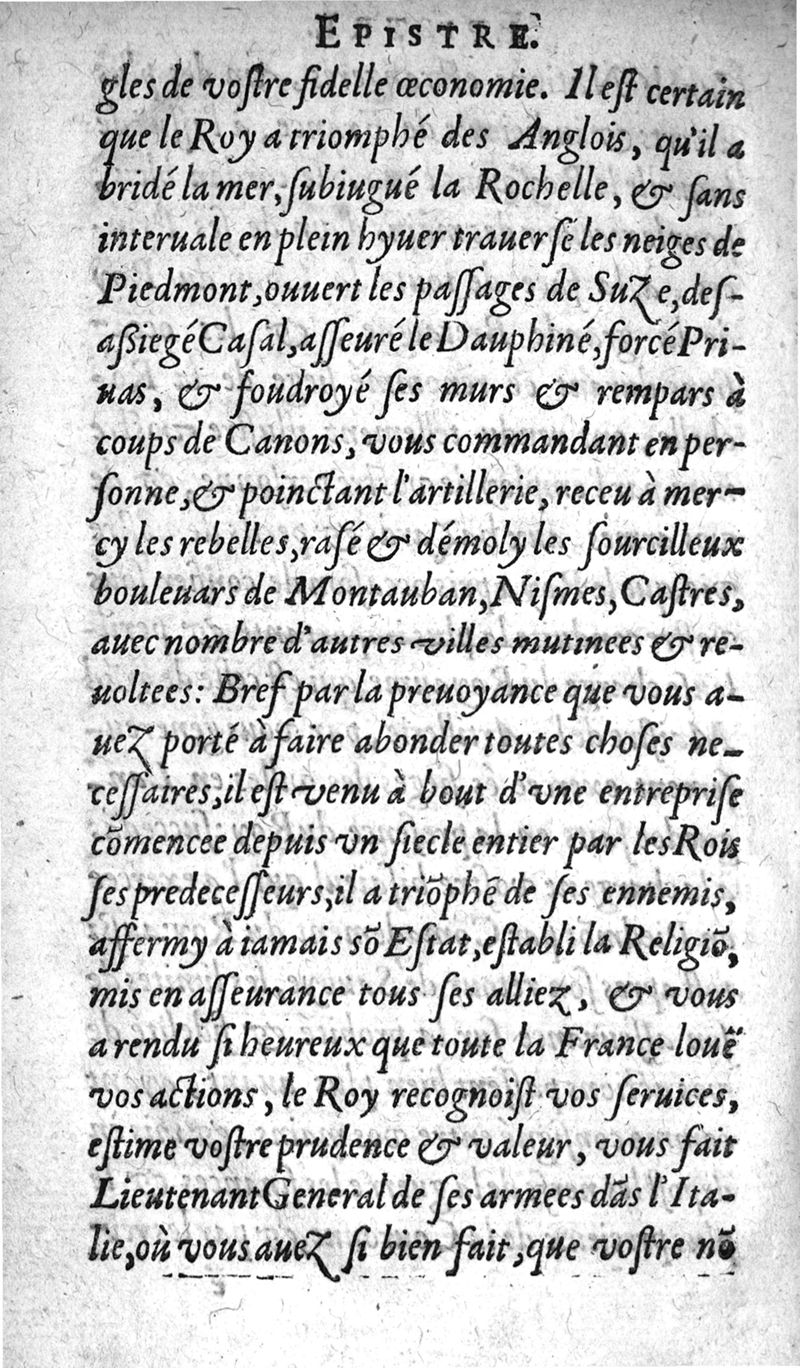 EPISTRE.
gles de voſtre fidelle œconomie. Il eſt certain
que le Roy a triomphé des Anglois, qu'il a
bridé la mer, ſubiugué la Rochelle, & ſans
interuale en plein hyuer trauerſé les neiges de
Piedmont, ouuert les paſſages de Suze, deſ-
aßiegé Caſal, aſſeuré le Dauphiné, forcé Pri-
uas, & foudroyé ſes murs & rempars à
coups de Canons, vous commandant en per-
ſonne, & poinctant l'artillerie, receu à mer-
cy les rebelles, raſé & démoly les ſourcilleux
bouleuars de Montauban, Niſmes, Caſtres,
auec nombre d'autres villes mutinees & re-
uoltees: Bref par la preuoyance que vous a-
uez porté à faire abonder toutes choſes ne-
ceſſaires, il eſt venu à bout d'vne entrepriſe
cõmencee depuis vn ſiecle entier par les Rois
ſes predeceſſeurs, il a triõphé de ſes ennemis,
affermy à iamais sõ Eſtat, eſtabli la Religiõ,
mis en aſſeurance tous ſes alliez, & vous
a rendu ſi heureux que toute la France louë
vos actions, le Roy recognoiſt vos ſeruices,
eſtime voſtre prudence & valeur, vous fait
Lieutenant General de ſes armees dãs l'Ita-
lie, où vous auez ſi bien fait, que voſtre nõ